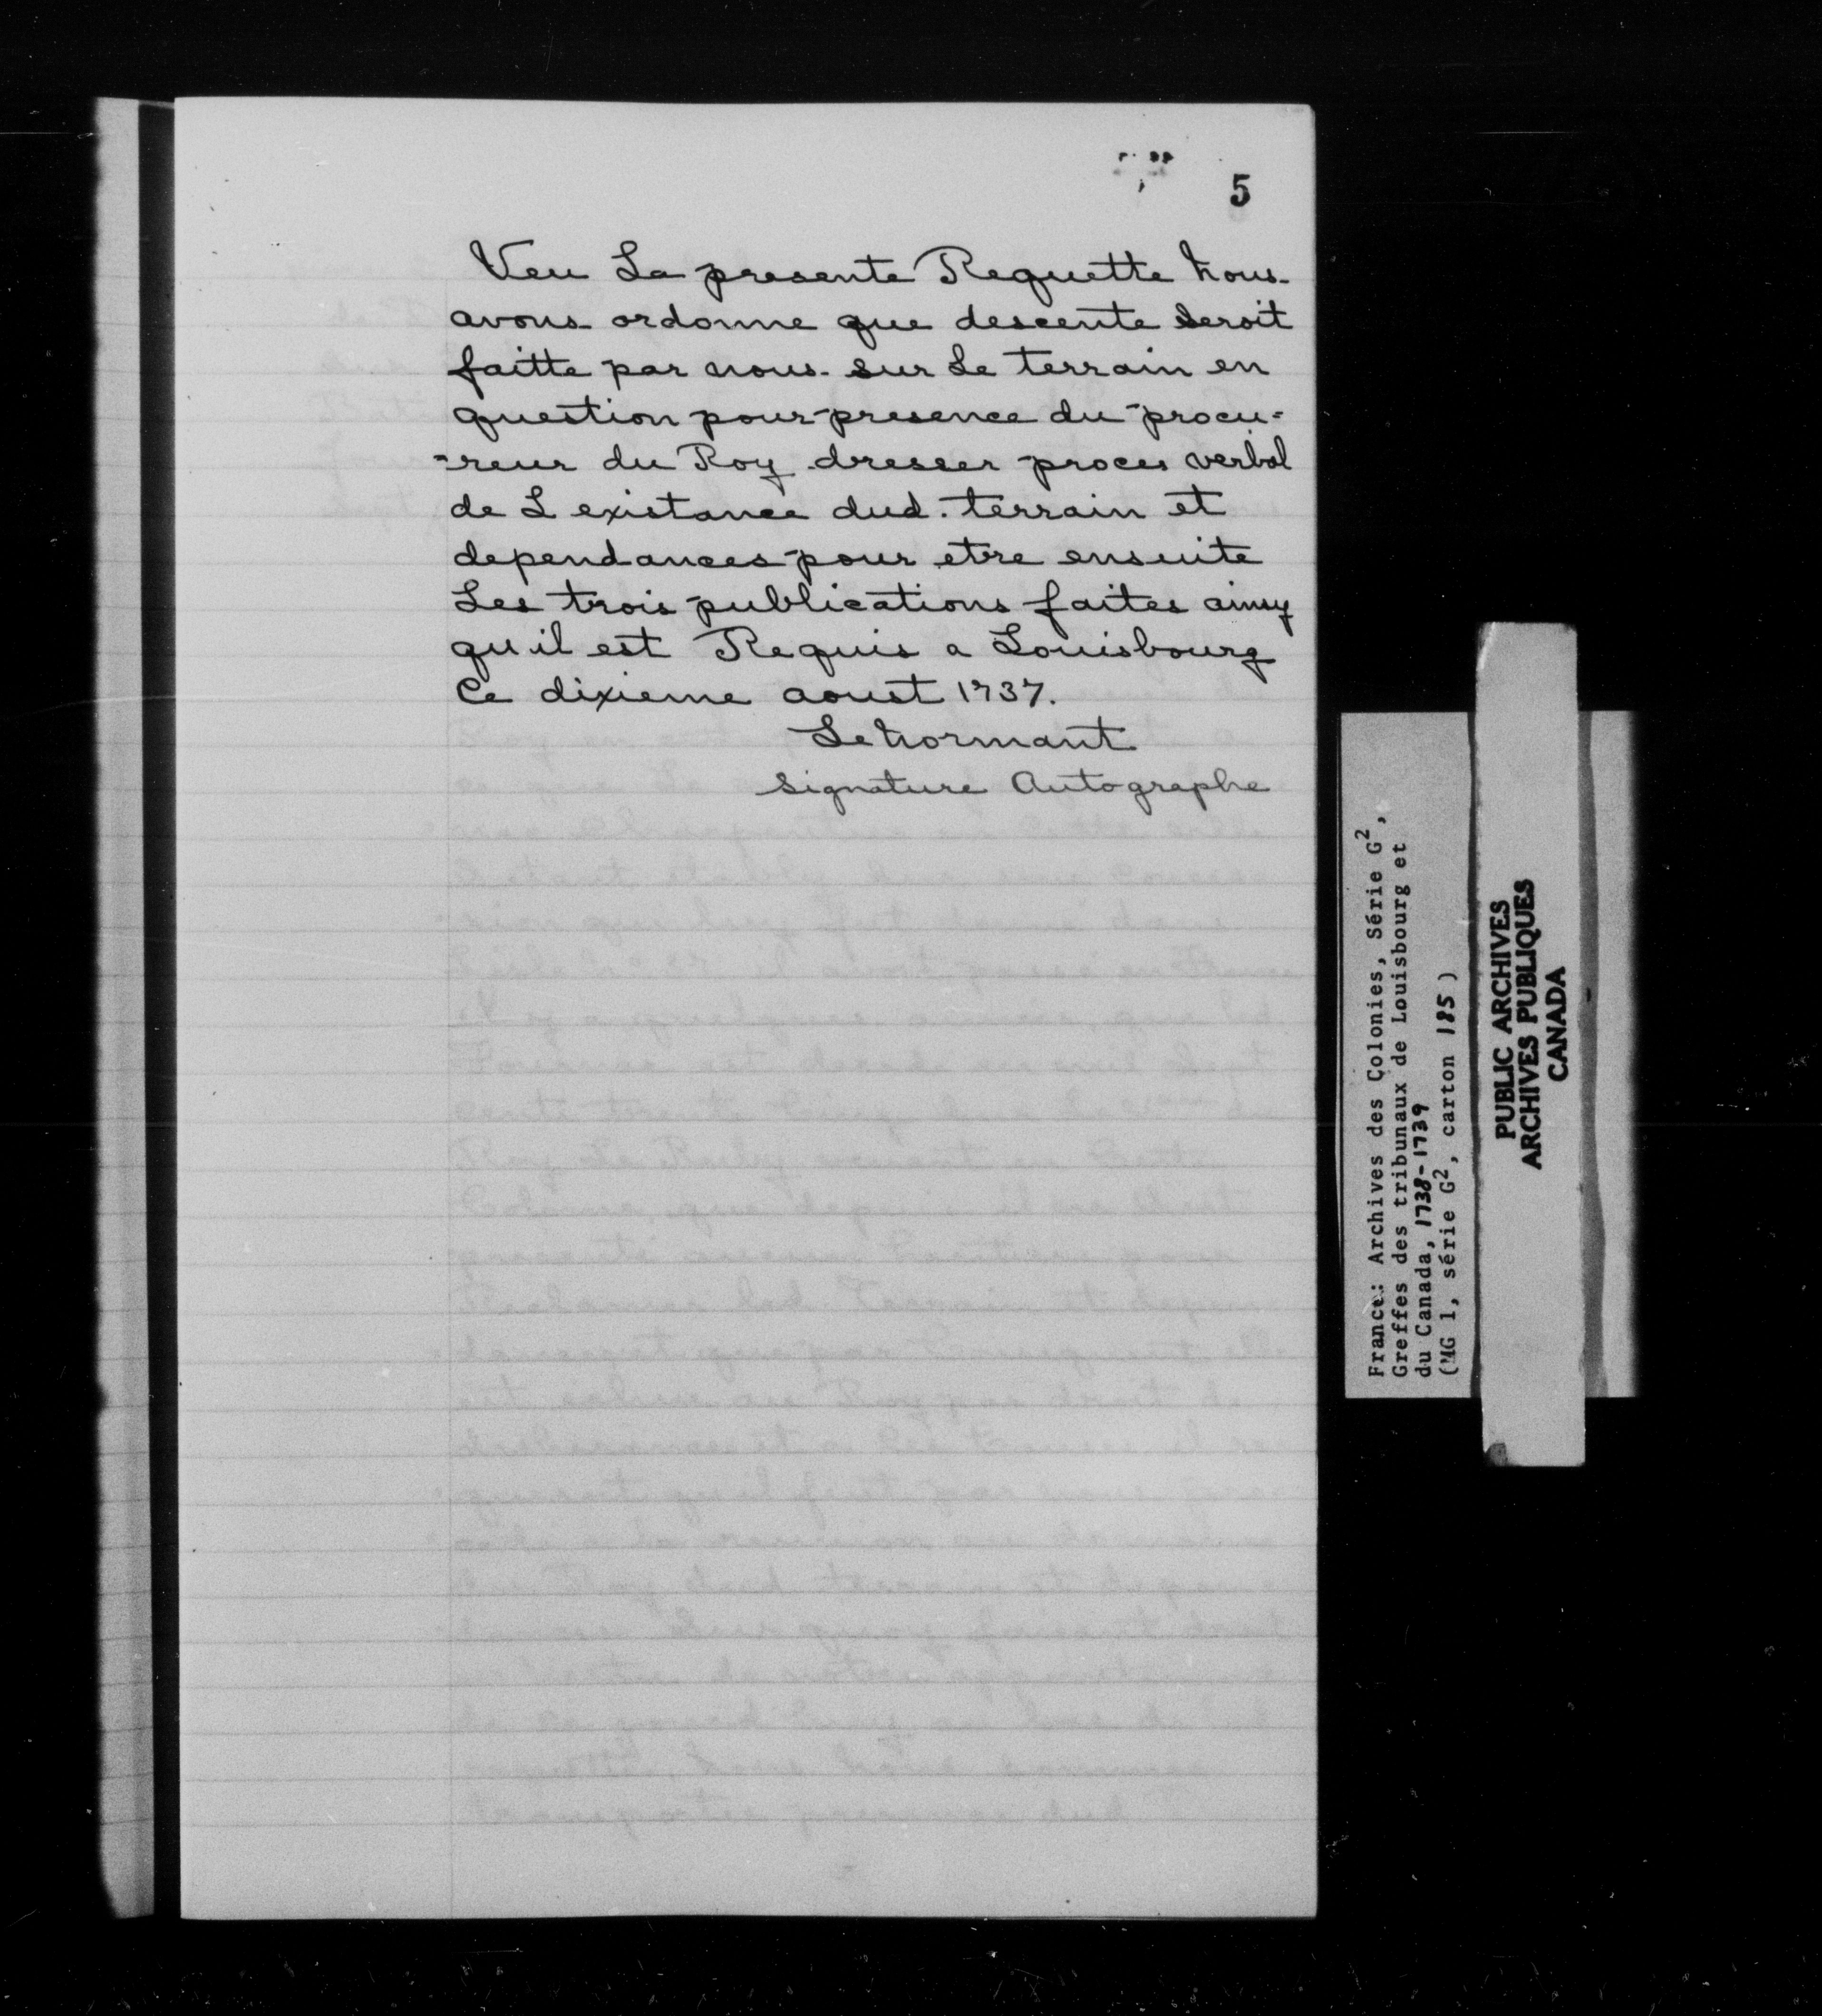 5
Veu La presente Requette nous
avons ordonne que descente seroit
faitte par nous sur Le terrain en
question pour presence du procu=
=reur du Roy dresser proces verbal
de L existance dud. terrain et
dependances pour etre ensuite
Les trois publications faites ainsy
qu il est Requis a Louisbourg
Ce dixieme aoust 1737.
Lenormant
Signature Autographe
France: Archives des Colonies, Série G2,
Greffes des tribunaux de Louisbourg et
du Canada, 1738-1739
(MG 1, série G2, carton 185)
PUBLIC ARCHIVES
ARCHIVES PUBLIQUES
CANADA